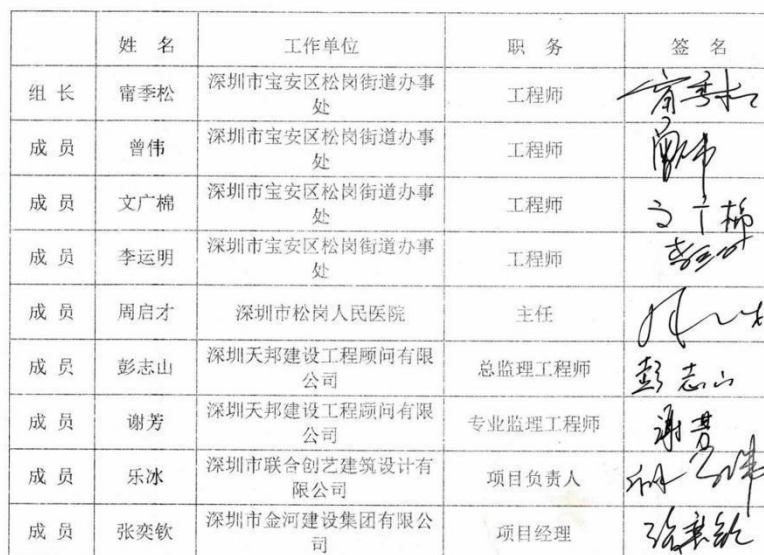 姓 名 工作单位 职 务 签 名
组 长 甯季松 深圳市宝安区松岗街道办事处 工程师 甯季松
成 员 曾伟 深圳市宝安区松岗街道办事处 工程师 曾伟
成 员 文广棉 深圳市宝安区松岗街道办事处 工程师 文广棉
成 员 李运明 深圳市宝安区松岗街道办事处 工程师
成 员 周启才 深圳市松岗人民医院 主任
成 员 彭志山 深圳天邦建设工程顾问有限公司 总监理工程师 彭志山
成 员 谢芳 深圳天邦建设工程顾问有限公司 专业监理工程师 谢芳
成 员 乐冰 深圳市联合创艺建筑设计有限公司 项目负责人
成 员 张奕钦 深圳市金河建设集团有限公司 项目经理 张奕钦